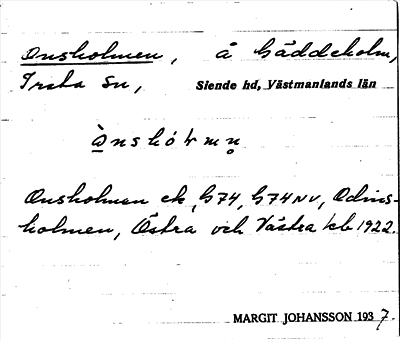 Onsholmen, å Gäddeholm,
Irsta sn, Siende hd, Västmanlands län
ὰnshólmn̥
Onsholmen ek, G74, G74NV, Odins-
holmen, Östra och Västra kb 1922.
MARGIT JOHANSSON 1937.